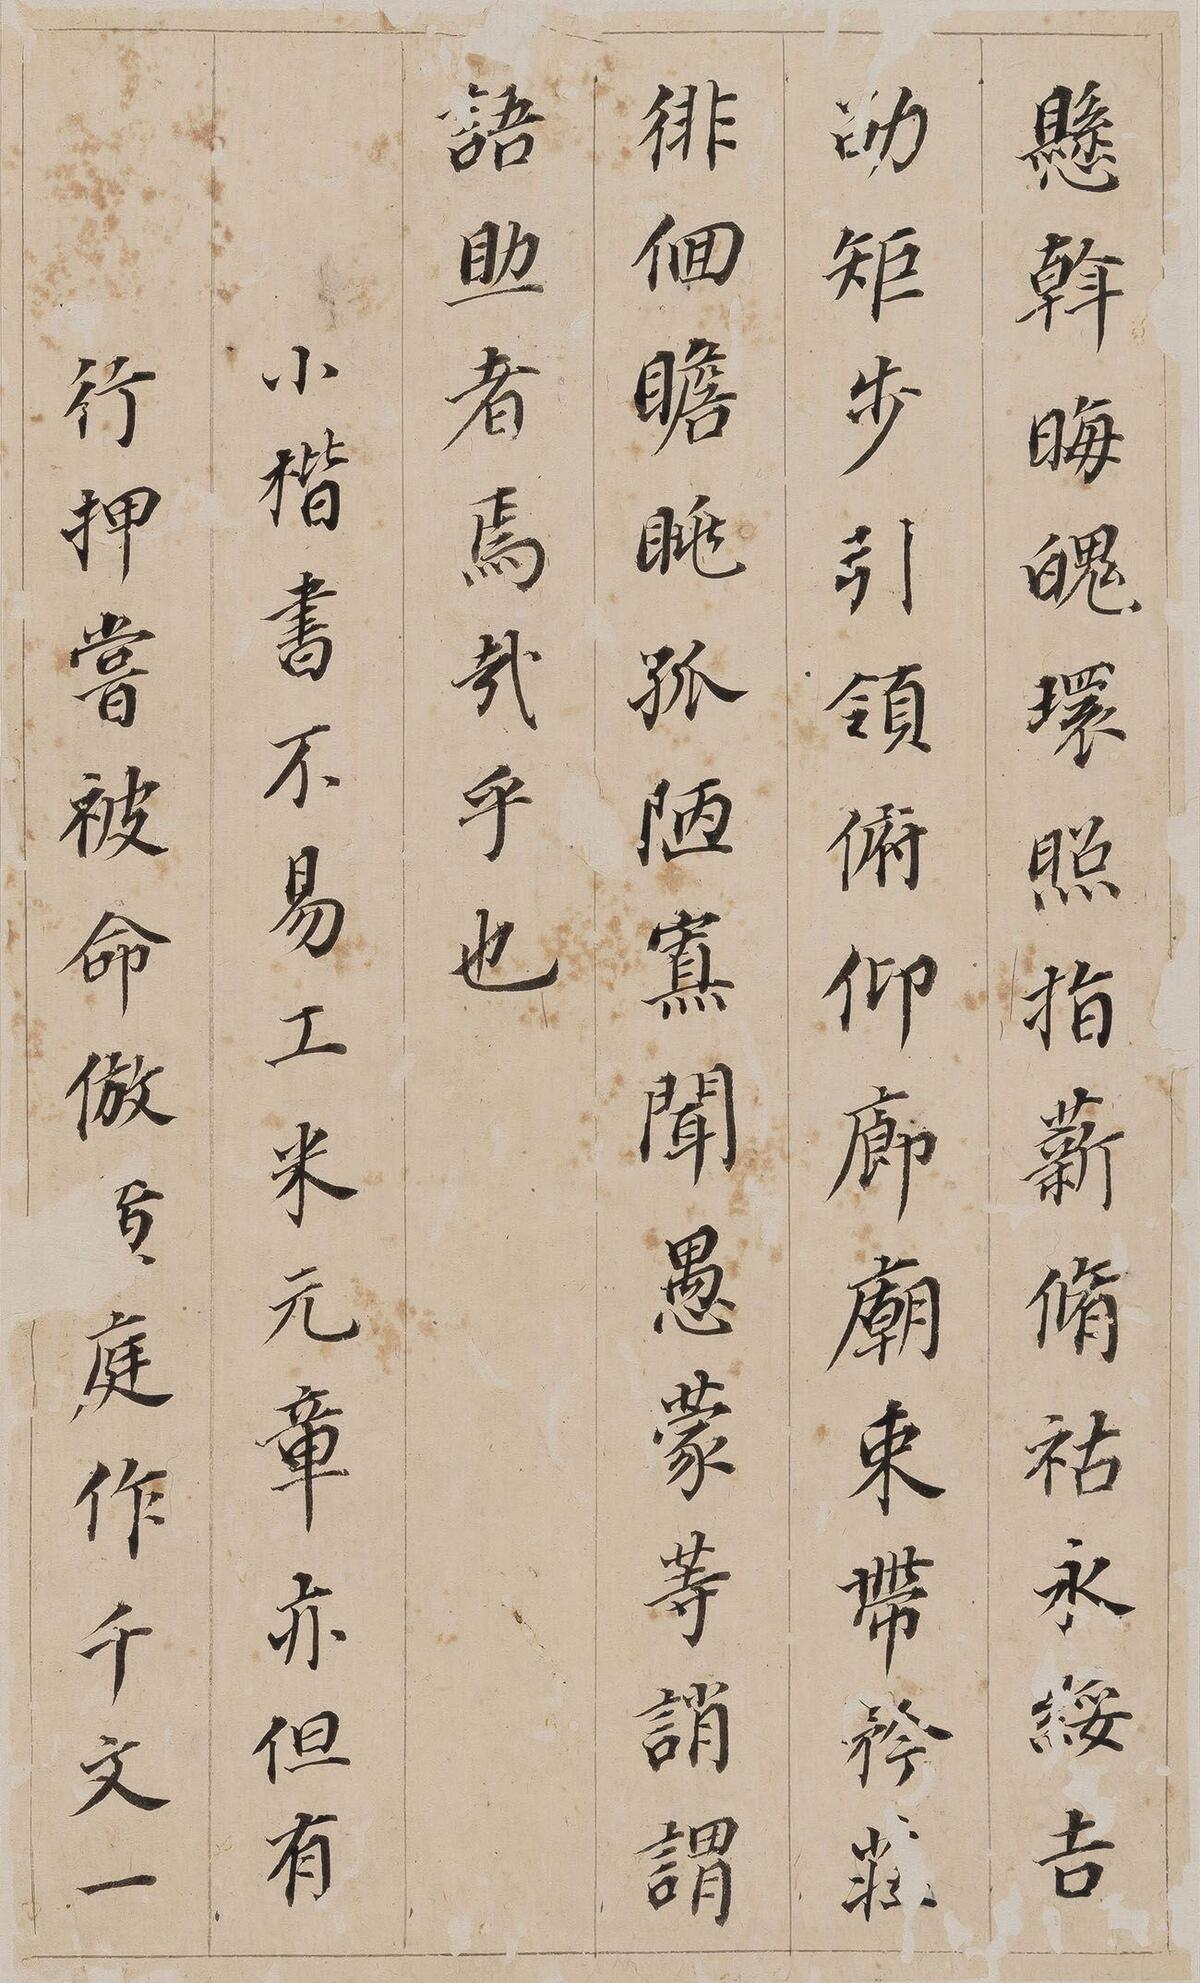 懸斡晦魄環照指薪脩祜永綏吉
劭矩步引領俯仰廊廟束帶矜莊
徘徊瞻眺孤陋寡聞愚蒙等誚謂
語助者焉哉乎也
小楷書不易工米元章亦但有
行押嘗被命倣黃庭作千文一